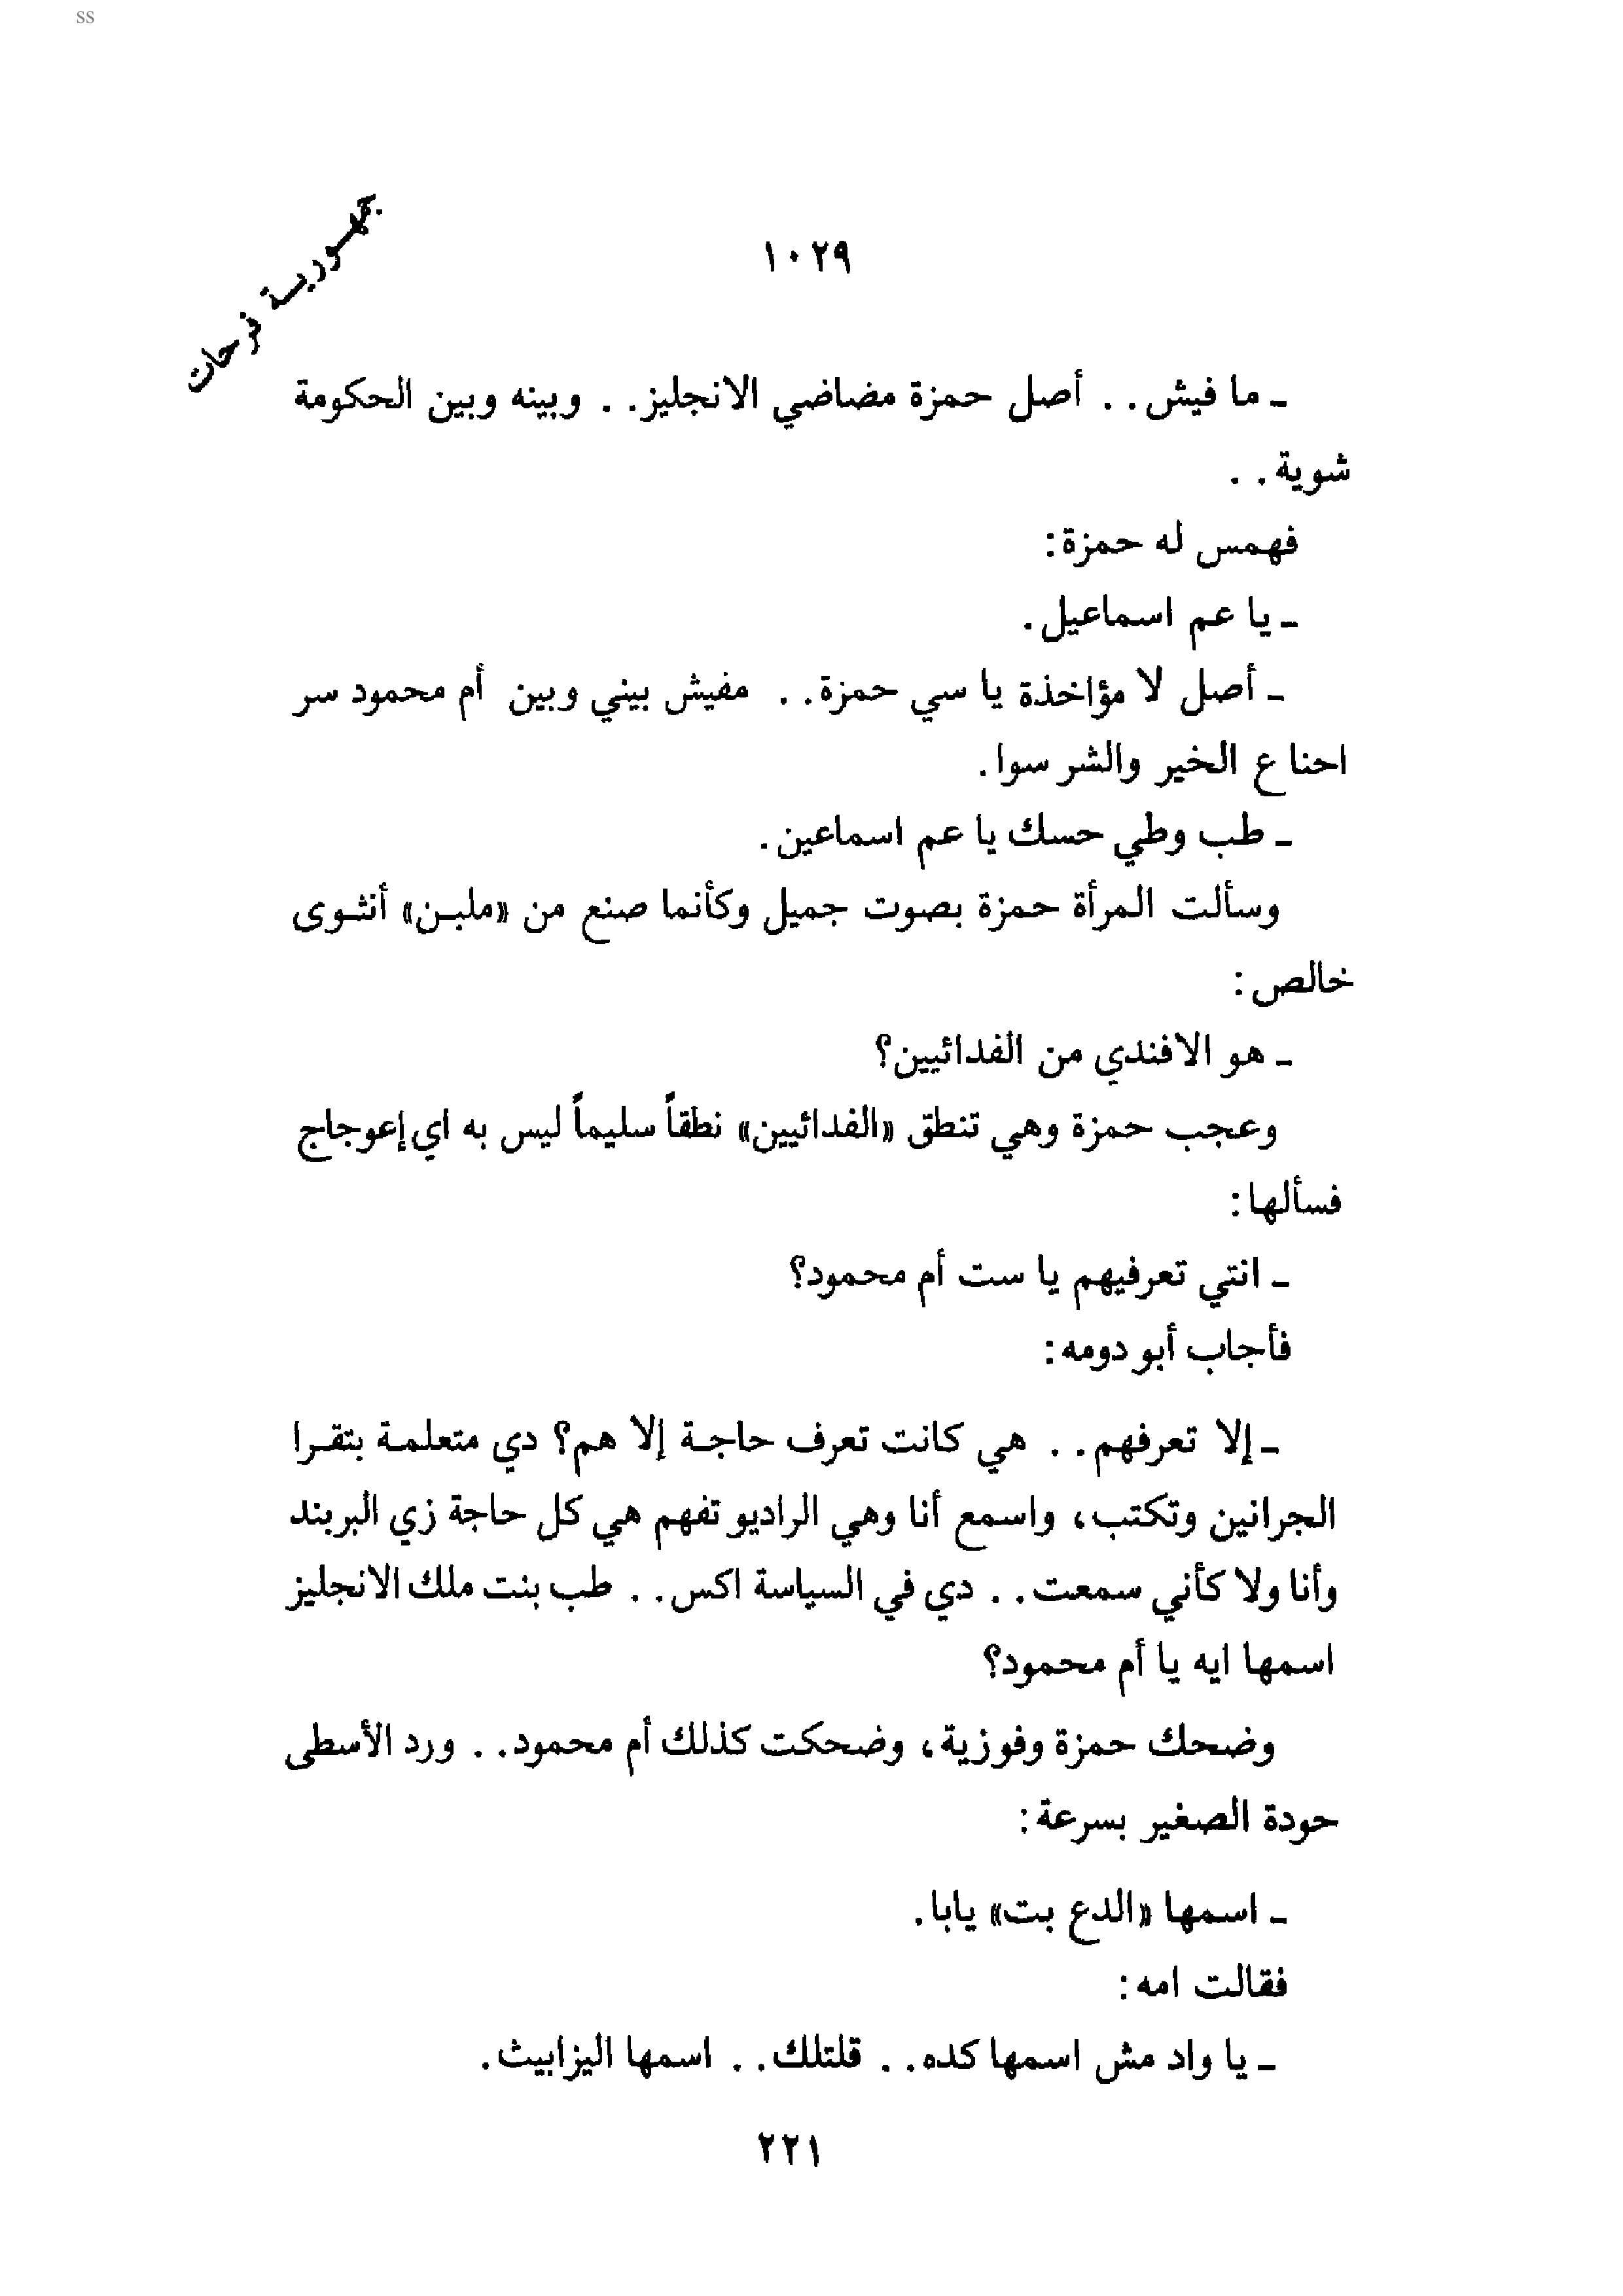 ss
جمهورية فرحات
١٠٢٩
ـ ما فيش . . أصل حمزة مضاضي الانجليز . . وبينه وبين الحكومة
شوية . .
فهمس له حمزة:
ـ يا عم اسماعيل .
ـ أصل لا مؤاخذة يا سي حمزة . . مفيش بيني وبين أم محمود سر
احنا ع الخير والشر سوا .
ـ طب وطي حسك يا عم اسماعين .
وسألت المرأة حمزة بصوت جميل وكأنما صنع من «ملبـن» أنثـوى
خالص :
ـ هو الافندي من الفدائيين؟
وعجب حمزة وهي تنطق «الفدائيين» نطقاً سليماً ليس به اي إعوجاج
فسألها :
ـ انتي تعرفيهم يا ست أم محمود؟
فأجاب أبو دومه :
ـ إلا تعرفهم . . هي كانت تعرف حاجـة إلا هم؟ دي متعلمـة بتقـرا
الجرانين وتكتب، واسمع أنا وهي الراديو تفهم هي كل حاجة زي البربند
وأنا ولا كأني سمعت . . دي في السياسة اكس . . طب بنت ملك الانجليز
اسمها ايه يا أم محمود؟
وضحك حمزة وفوزية، وضحكت كذلك أم محمود . . ورد الأسطى
حودة الصغير بسرعة :
ـ اسمها «الدع بت» يابا .
فقالت امه :
ـ يا واد مش اسمها كده . . قلتلك . . اسمها اليزابيث .
٢٢١